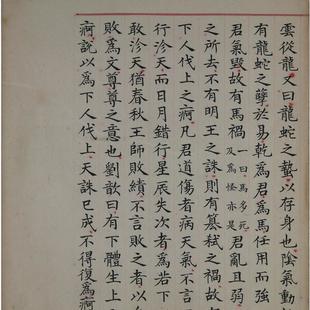 雲從龍又曰龍蛇之蟄以存身也陰氣動
有龍蛇之孽於易乾爲君爲馬任用而強
君氣毀故有馬禍一曰馬多死及爲怪亦是君亂且弱
之所去不有明王之誅則有簒弒之禍故
下人伐上之痾凡君道傷者病天氣不言
行沴天而日月錯行星辰失次者爲若下
敢沴天猶春秋王師敗績不言敗之者以
敗爲文尊尊之意也劉歆曰有下體生上
痾說以爲下人伐上天誅已成不得復爲痾